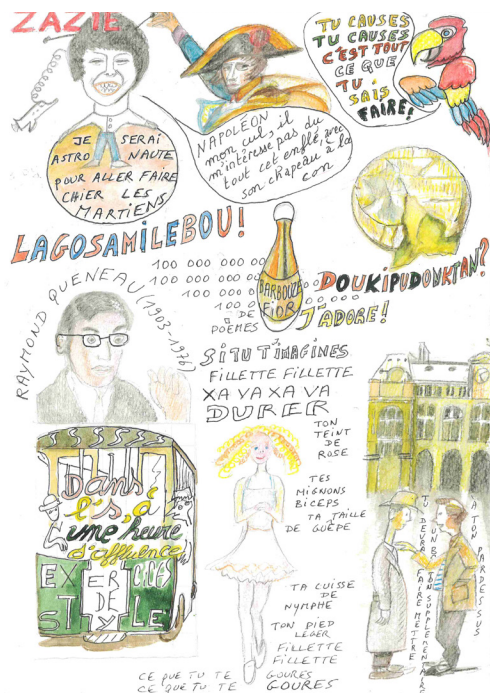 ZAZIE
JE SERAI
ASTRONAUTE
POUR ALLER FAIRE
CHIER LES
MARTIENS
NAPOLÉON
mon cul, il
m'intéresse pas du
tout cet enflé, avec
son chapeau à la
con
TU CAUSES
TU CAUSES
C'EST TOUT
CE QUE
TU
SAIS
FAIRE!
LAGOSAMILEBOU!
100 000 000 00
100 000 000 0
100 000 0
100 0
DE
POÈMES
BARBOUZE
FIOR
DOUKIPUDONKTAN?
J'ADORE!
RAYMOND QUENEAU (1903-1976)
SI TU T'IMAGINES
FILLETTE FILLETTE
XA VA XA VA
DURER
TON
TEINT
DE
ROSE
TES
MIGNONS
BICEPS
TA TAILLE
DE GUÊPE
TA CUISSE
DE
NYMPHE
TON PIED
LÉGER
FILLETTE
FILLETTE
CE QUE TU TE GOURES
CE QUE TU TE GOURES
Dans
l's, à
une heure
d'affluence
EXERCICES
DE
STYLE
TU DEVRAIS FAIRE METTRE
UN BOUTON SUPPLÉMENTAIRE
A TON PARDESSUS